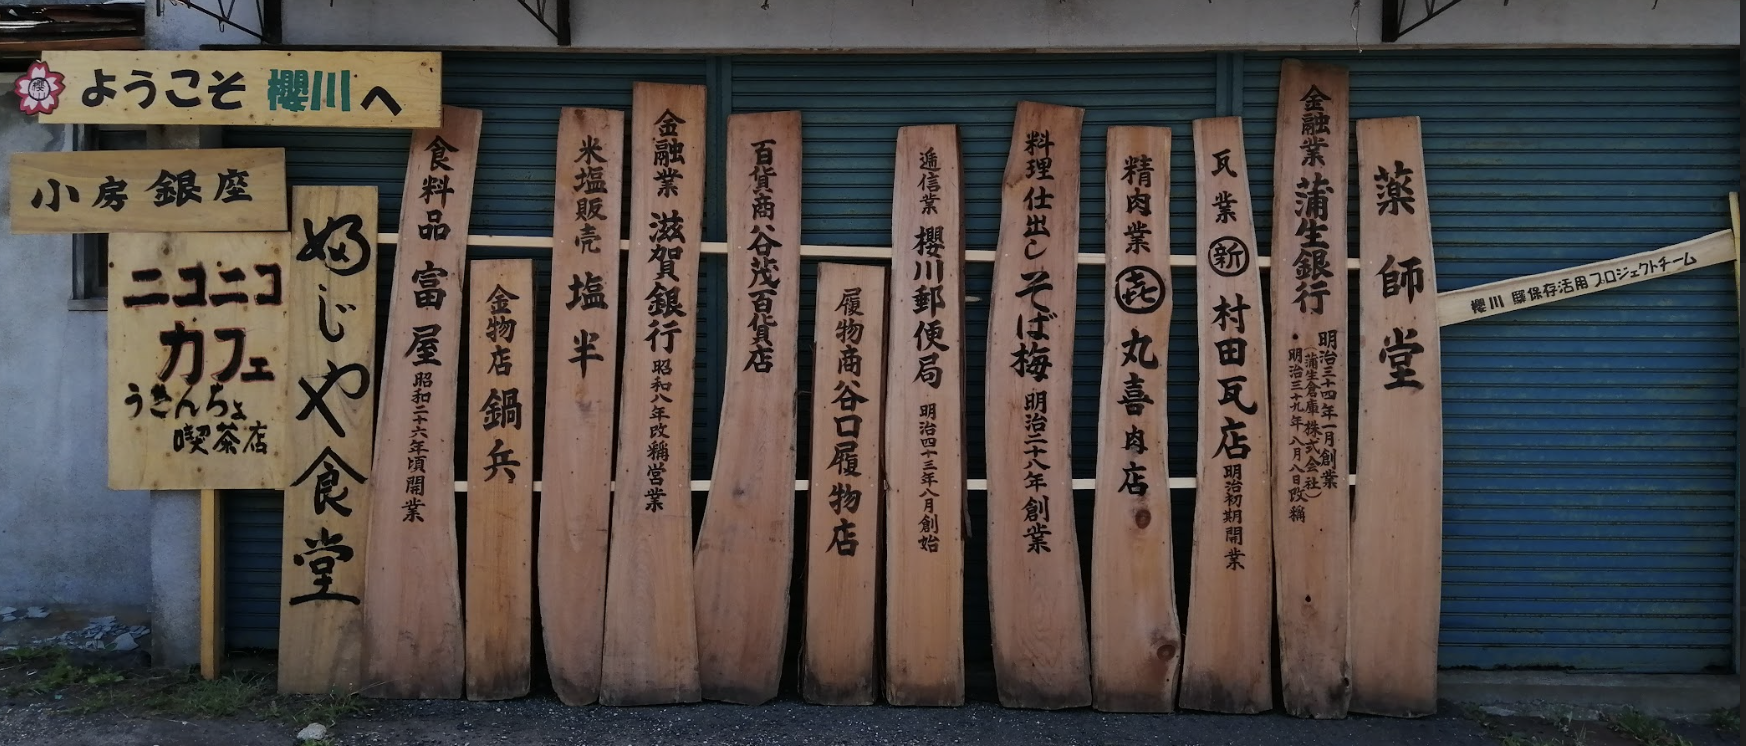 ようこそ 櫻川へ
小房銀座
ニコニコ
カフェ
うきんちょ
喫茶店
ふじや食堂
食料品 富屋 昭和二十六年頃開業
金物店 鍋兵
米塩販売 塩半
金融業 滋賀銀行 昭和八年改稱営業
百貨商 谷茂百貨店
履物商 谷口履物店
逓信業 櫻川郵便局 明治四十三年八月創始
料理仕出し そば梅 明治二十八年創業
精肉業 ㊁ 丸喜肉店
瓦業 新 村田瓦店 明治初期開業
金融業 蒲生銀行
・明治三十四年一月創業
(蒲生倉庫株式会社)
明治三十九年八月八日改稱
薬師堂
櫻川驛保存活用プロジェクトチーム